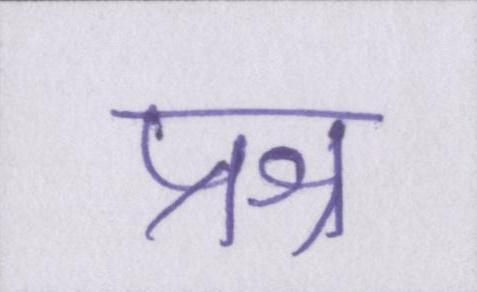 प्रश्न